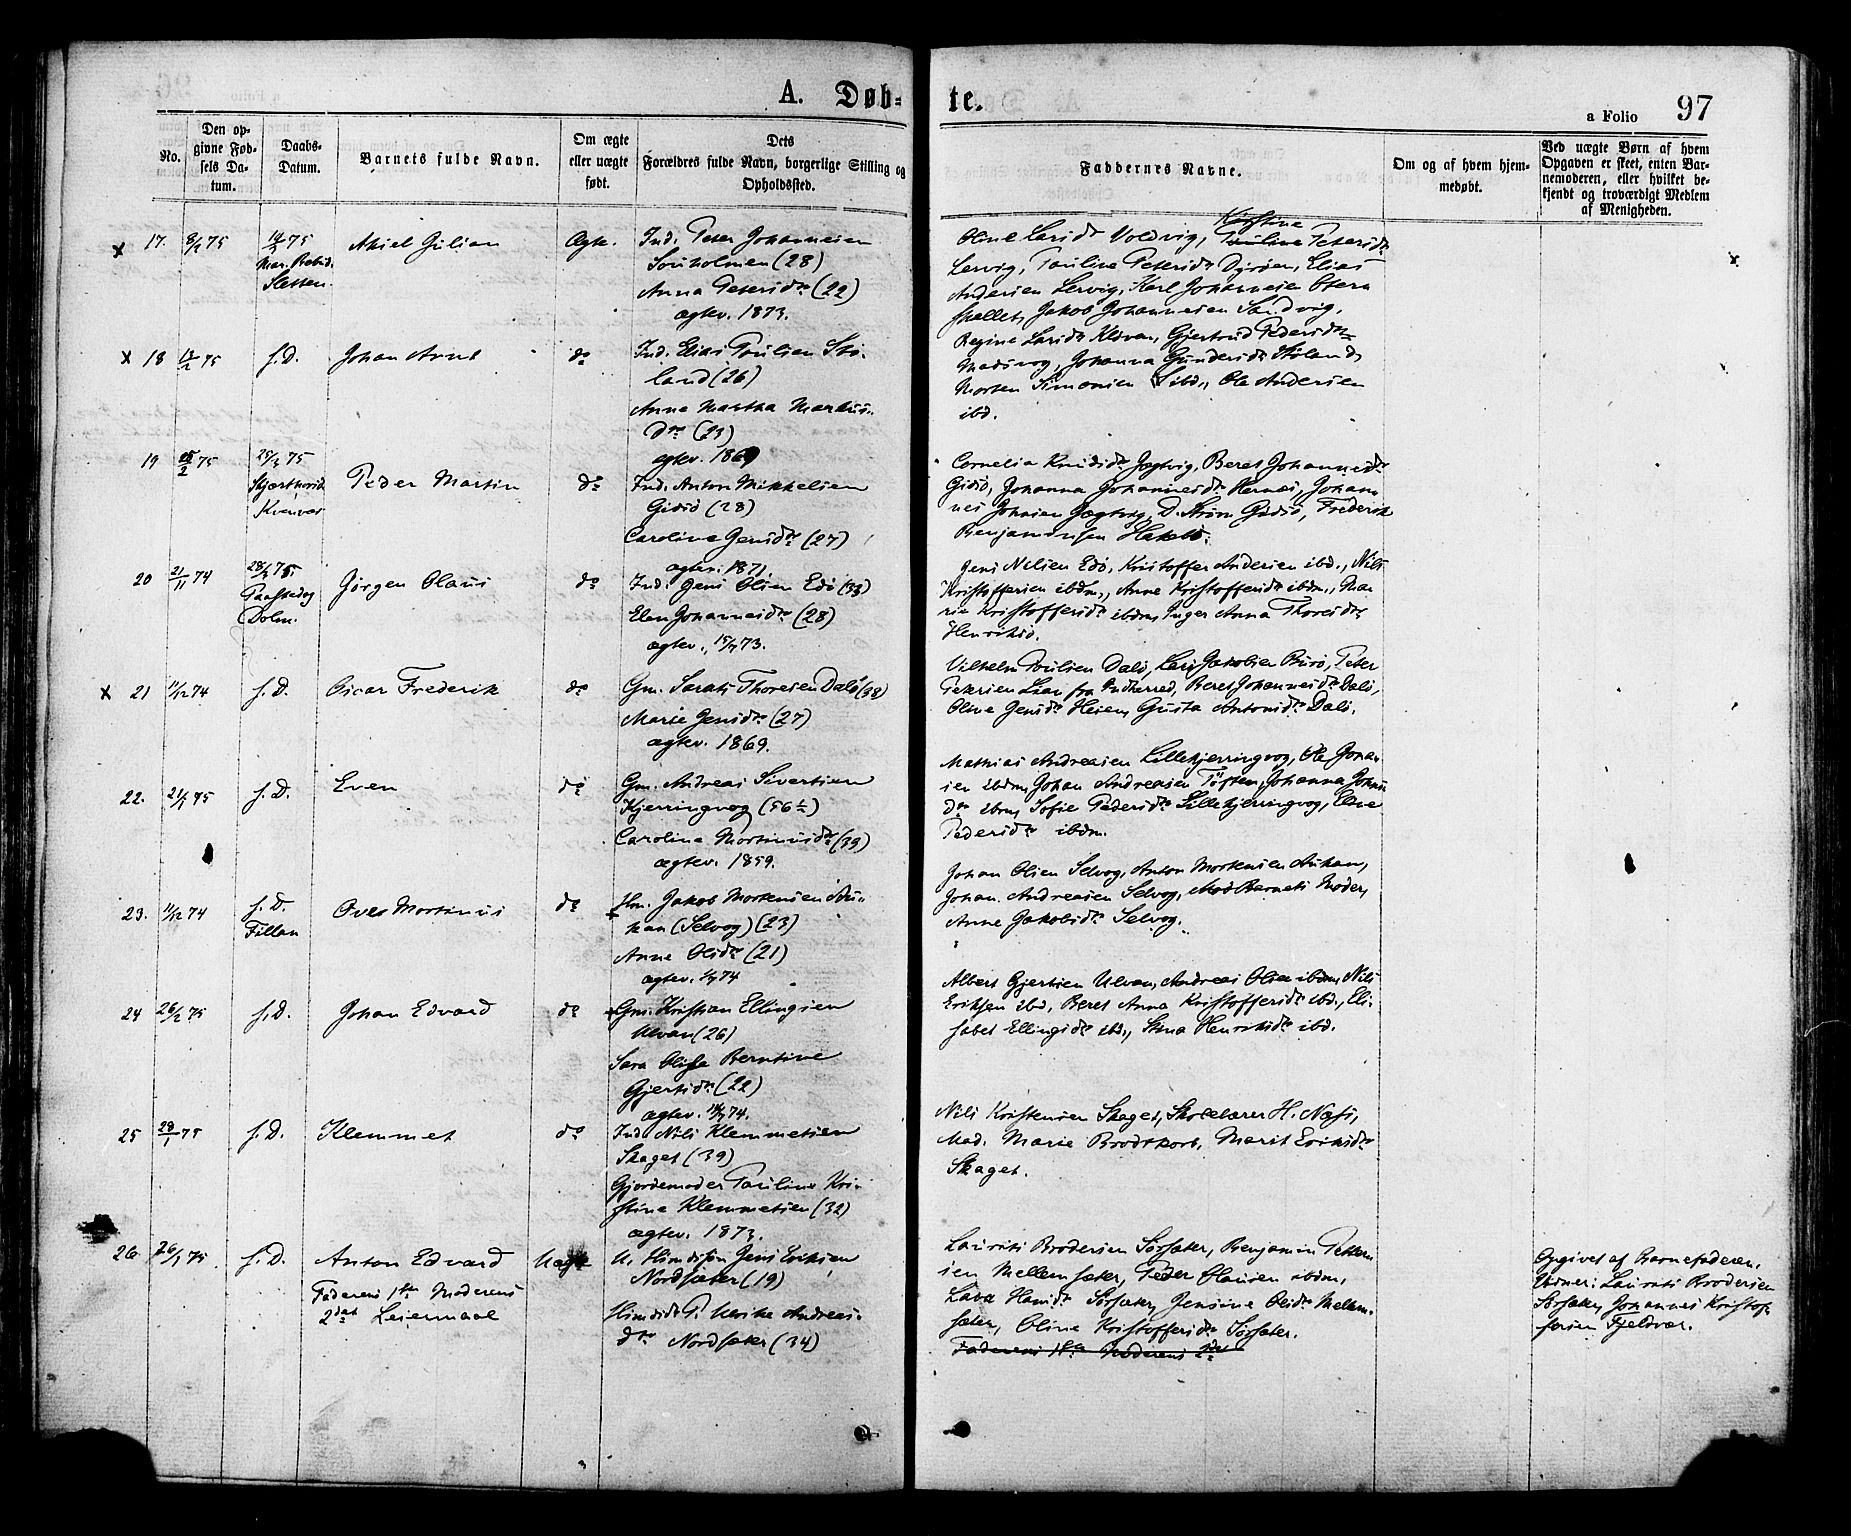 A. Døb=
te.
a Folio 97
No.
Den op-
givne Fød-
sels Da-
tum.
Daabs-
Datum.
Barnets fulde Navn.
Om ægte
eller uægte
født.
Dets
Forældres fulde Navn, borgerlige Stilling og
Opholdssted.
Faddernes Navne.
Om og af hvem hjem-
medøbt.
Ved uægte Børn af hvem
Opgaven er skeet, enten Bar-
nemoderen, eller hvilket be-
kjendt og troværdigt Medlem
af Menigheden.
x 17. 9/2 75
Mar. Bebud.
Sletten.
Axel Gilian
Ægte.
Ind. Peter Johannesen
(28)
Anna Petersdr. (22)
ægtev. 1873.
Kirstine
Oline Larsdr Voldvig, Pauline Petersdr
Lervig, Pauline Petersdr. Dyrøen, Elias
Andersen Lervig, Karl Johannesen
Jakob Johannesen Sandvig.
x 18 75
s.D.
Johan Arnt
do
Ind. Elias Poulsen Stø-
land (26)
Anne Martha Markus-
dr. (23)
ægtev. 1869
Regine Larsdr Ulvan, Gjertrud Pedersdr
Madsvog, Johanna Gundersdr Støland,
Morten Simonsen ibd., Ole Andersen
ibd.
19 75
25/3 75
Skjærthorsd.
Kvenvær
Peder Martin
do
Ind. Anton Mikkelsen
Gisiø (28)
Caroline Jensdr. (27)
ægtev. 1871.
Cornelia Knudsdr. Jægtvig, Beret Johannesdr
Gisiø, Johanna Johannesdr. Hernes, Johan-
nes Johnsen Jægtvig, D. Strøm Gisiø, Frederik
Benjaminsen
20 21/11 74
28/3 75.
Paaskedag
Dolm.
Jørgen Olaus
do
Ind. Jens Olsen Edø (33)
Elen Johannesdr. (28)
ægtev. 73.
Jens Nilsen Edø, Kristoffer Andersen ibd., Nils
Kristoffersen ibdm., Anne Kristoffersdr ibdm., Ma-
rie Kristoffersdr. ibdm, Inger Anna Thoresdr
x 21 11/12 74
s.D.
Oscar Frederik
do
Gm. Sarals Thoresen Dalø (38)
Marie Jensdr. (27)
ægtev. 1869.
Vilhelm Poulsen Dalø, Lars Jakobsen Burø, Peter
Petersen Lian fra Indherred, Beret Johannesdr Dalø,
Oline Jensdr. Heien, Gusta Antonsdr. Dalø.
22. 21/1 75
s.D.
Even
do
Gm. Andreas Sivertsen
Kjerringvog (56½)
Caroline Mortinusdr (39)
ægtev. 1859.
Mathias Andreasen Lillekjerringvog, Ole Johan-
sen ibdm, Johan Andreasen Tøften, Johanna Johns-
dr. ibm, Sofie Pedersdr. Lillekjerringvog, Eline
Pedersdr. ibdm.
23. 11/12 74
s.D.
Fillan
Oves Mortinus
do
Hm. Jakob Mortensen Au-
kan (Selvog) (23)
Anne Olsdr (21)
ægtev. 74
Johan Olsen Selvog, Anton Mortensen Aukan,
Johan Andreasen Selvog, Mad Barnets Moder,
Anne Jakobsdr. Selvog.
24 26/2 75
s.D.
Johan Edvard
do
Gm. Kristian Ellingsen
Ulvan (26)
Sara Olissa Berntine
Gjertsdr. (22)
ægtev. 74.
Albert Gjertsen Ulvan, Andreas Olsen ibdm, Nils
Eriksen ibd, Beret Anna Kristoffersdr. ibd., Eli-
sabet Ellingsdr. ibd., Stina Henriksdr. ibd.
25 29/1 75
s.D.
Klemmet
do
Ind. Nils Klemmetsen
Skaget (39)
Gjordemoder Pauline Kri-
stine Klemmetsen (32)
ægtev. 1873.
Nils Kristensen Skaget, Skolelærer H. Næss,
Mad. Marie Brodtkorb, Marit Eriksdr
Skaget.
26. 26/1 75.
s.D.
Anton Edvard
Faderens 1ste Moderens
2det Leiermaal
Uægte
U. Husmdssøn Jens Eriksen
Nordsæter (19)
Husmdsdr P. Ulrikke Andreas-
dr. Nordsæter (34)
Laurits Brodersen Sørsæter, Benjamin Petter-
sen Mellemsæter, Peder Olausen ibdm,
Lava Hansdr. Sørsæter, Jensine Olsdr. Mellem-
sæter, Oline Kristoffersdr. Sørsæter.
Faderens 1ste Moderens 2det
Opgivet af Barnefaderen.
Vidner: Laurits Brodersen
Sørsæter, Johannes Kristof-
fersen Fjeldvær.